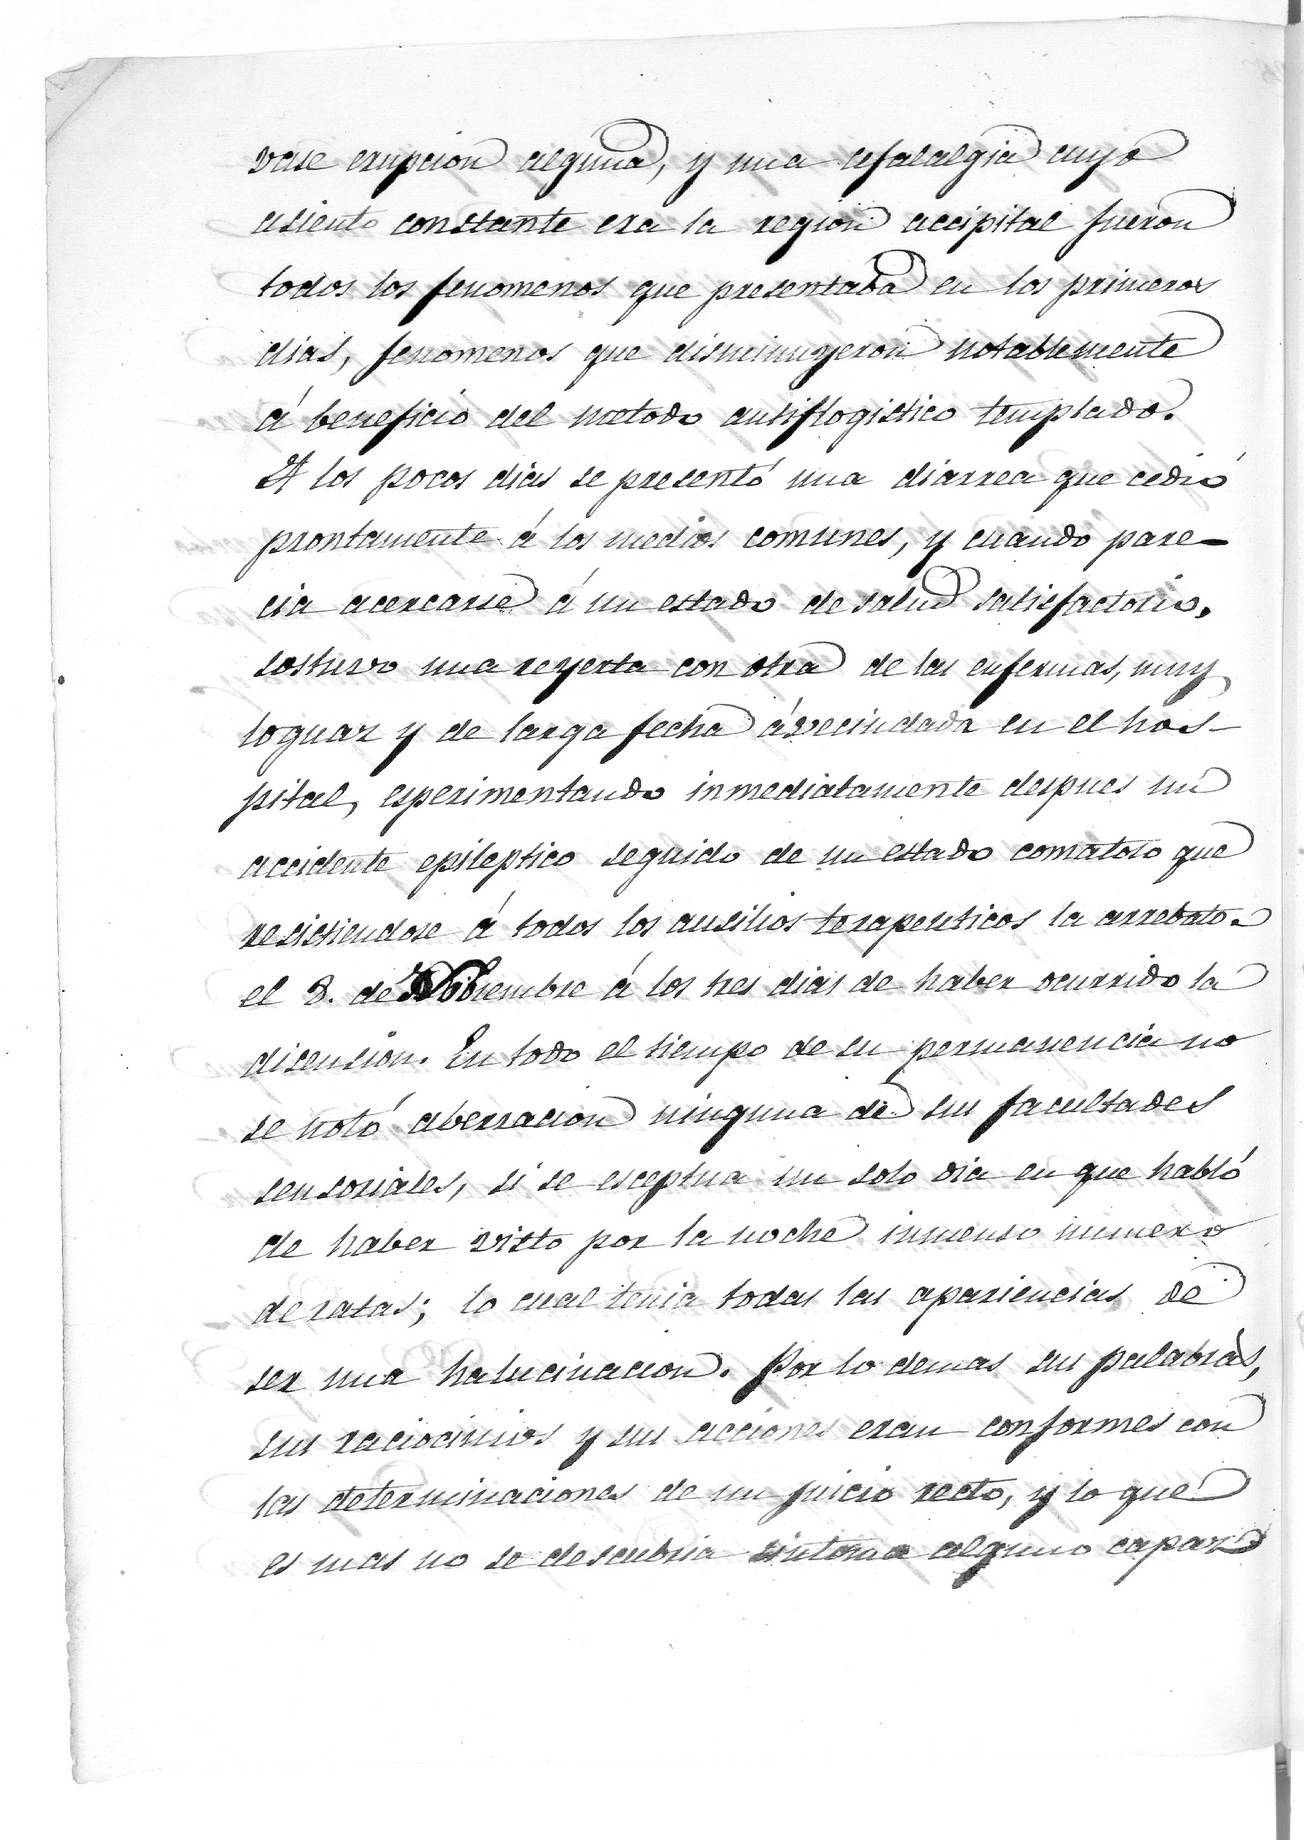 vase erupcion alguna, y una cefalalgia cuyo
asiento constante era la region occipital fueron
todos los fenomenos que presentaba en los primeros
dias, fenomenos que disminuyeron notablemente
á beneficio del metodo antiflogistico templado.
A los pocos dias se presentó una diarrea que cedió
prontamente á los medios comunes, y cuando pare-
cia acercarse á un estado de salud satisfactorio,
sostuvo una reyerta con otra de las enfermas, muy
loguaz y de larga fecha ávecindada en el hos-
pital, esperimentando inmediatamente despues un
accidente epileptico seguido de un estado comatoso que
resistiendose á todos los ausilios terapeuticos la arrebato
el 8. de Noviembre á los tres dias de haber ocurrido la
disension. En todo el tiempo de su permanencia no
se notó aberracion ninguna de sus facultades
sensoriales, si se esceptua un solo dia en que habló
de haber visto por la noche inmenso numero
de ratas; lo cual tenia todas las apariencias de
ser una halucinacion. Por lo demas sus palabras,
sus raciocinios y sus acciones eran conformes con
las determinaciones de un juicio recto, y lo que
es mas no se descubria sintoma alguno capaz